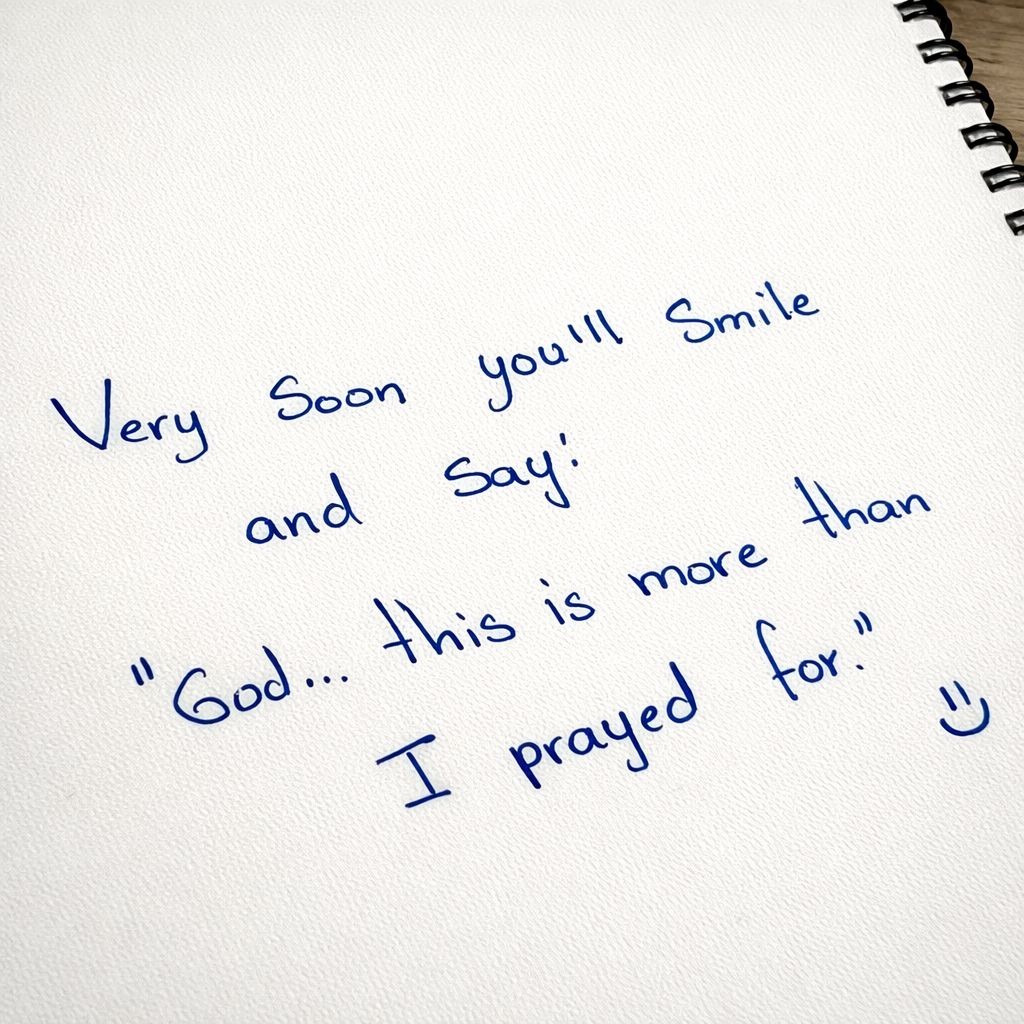 Very Soon you'll Smile
and Say:
"God... this is more than
I prayed for."